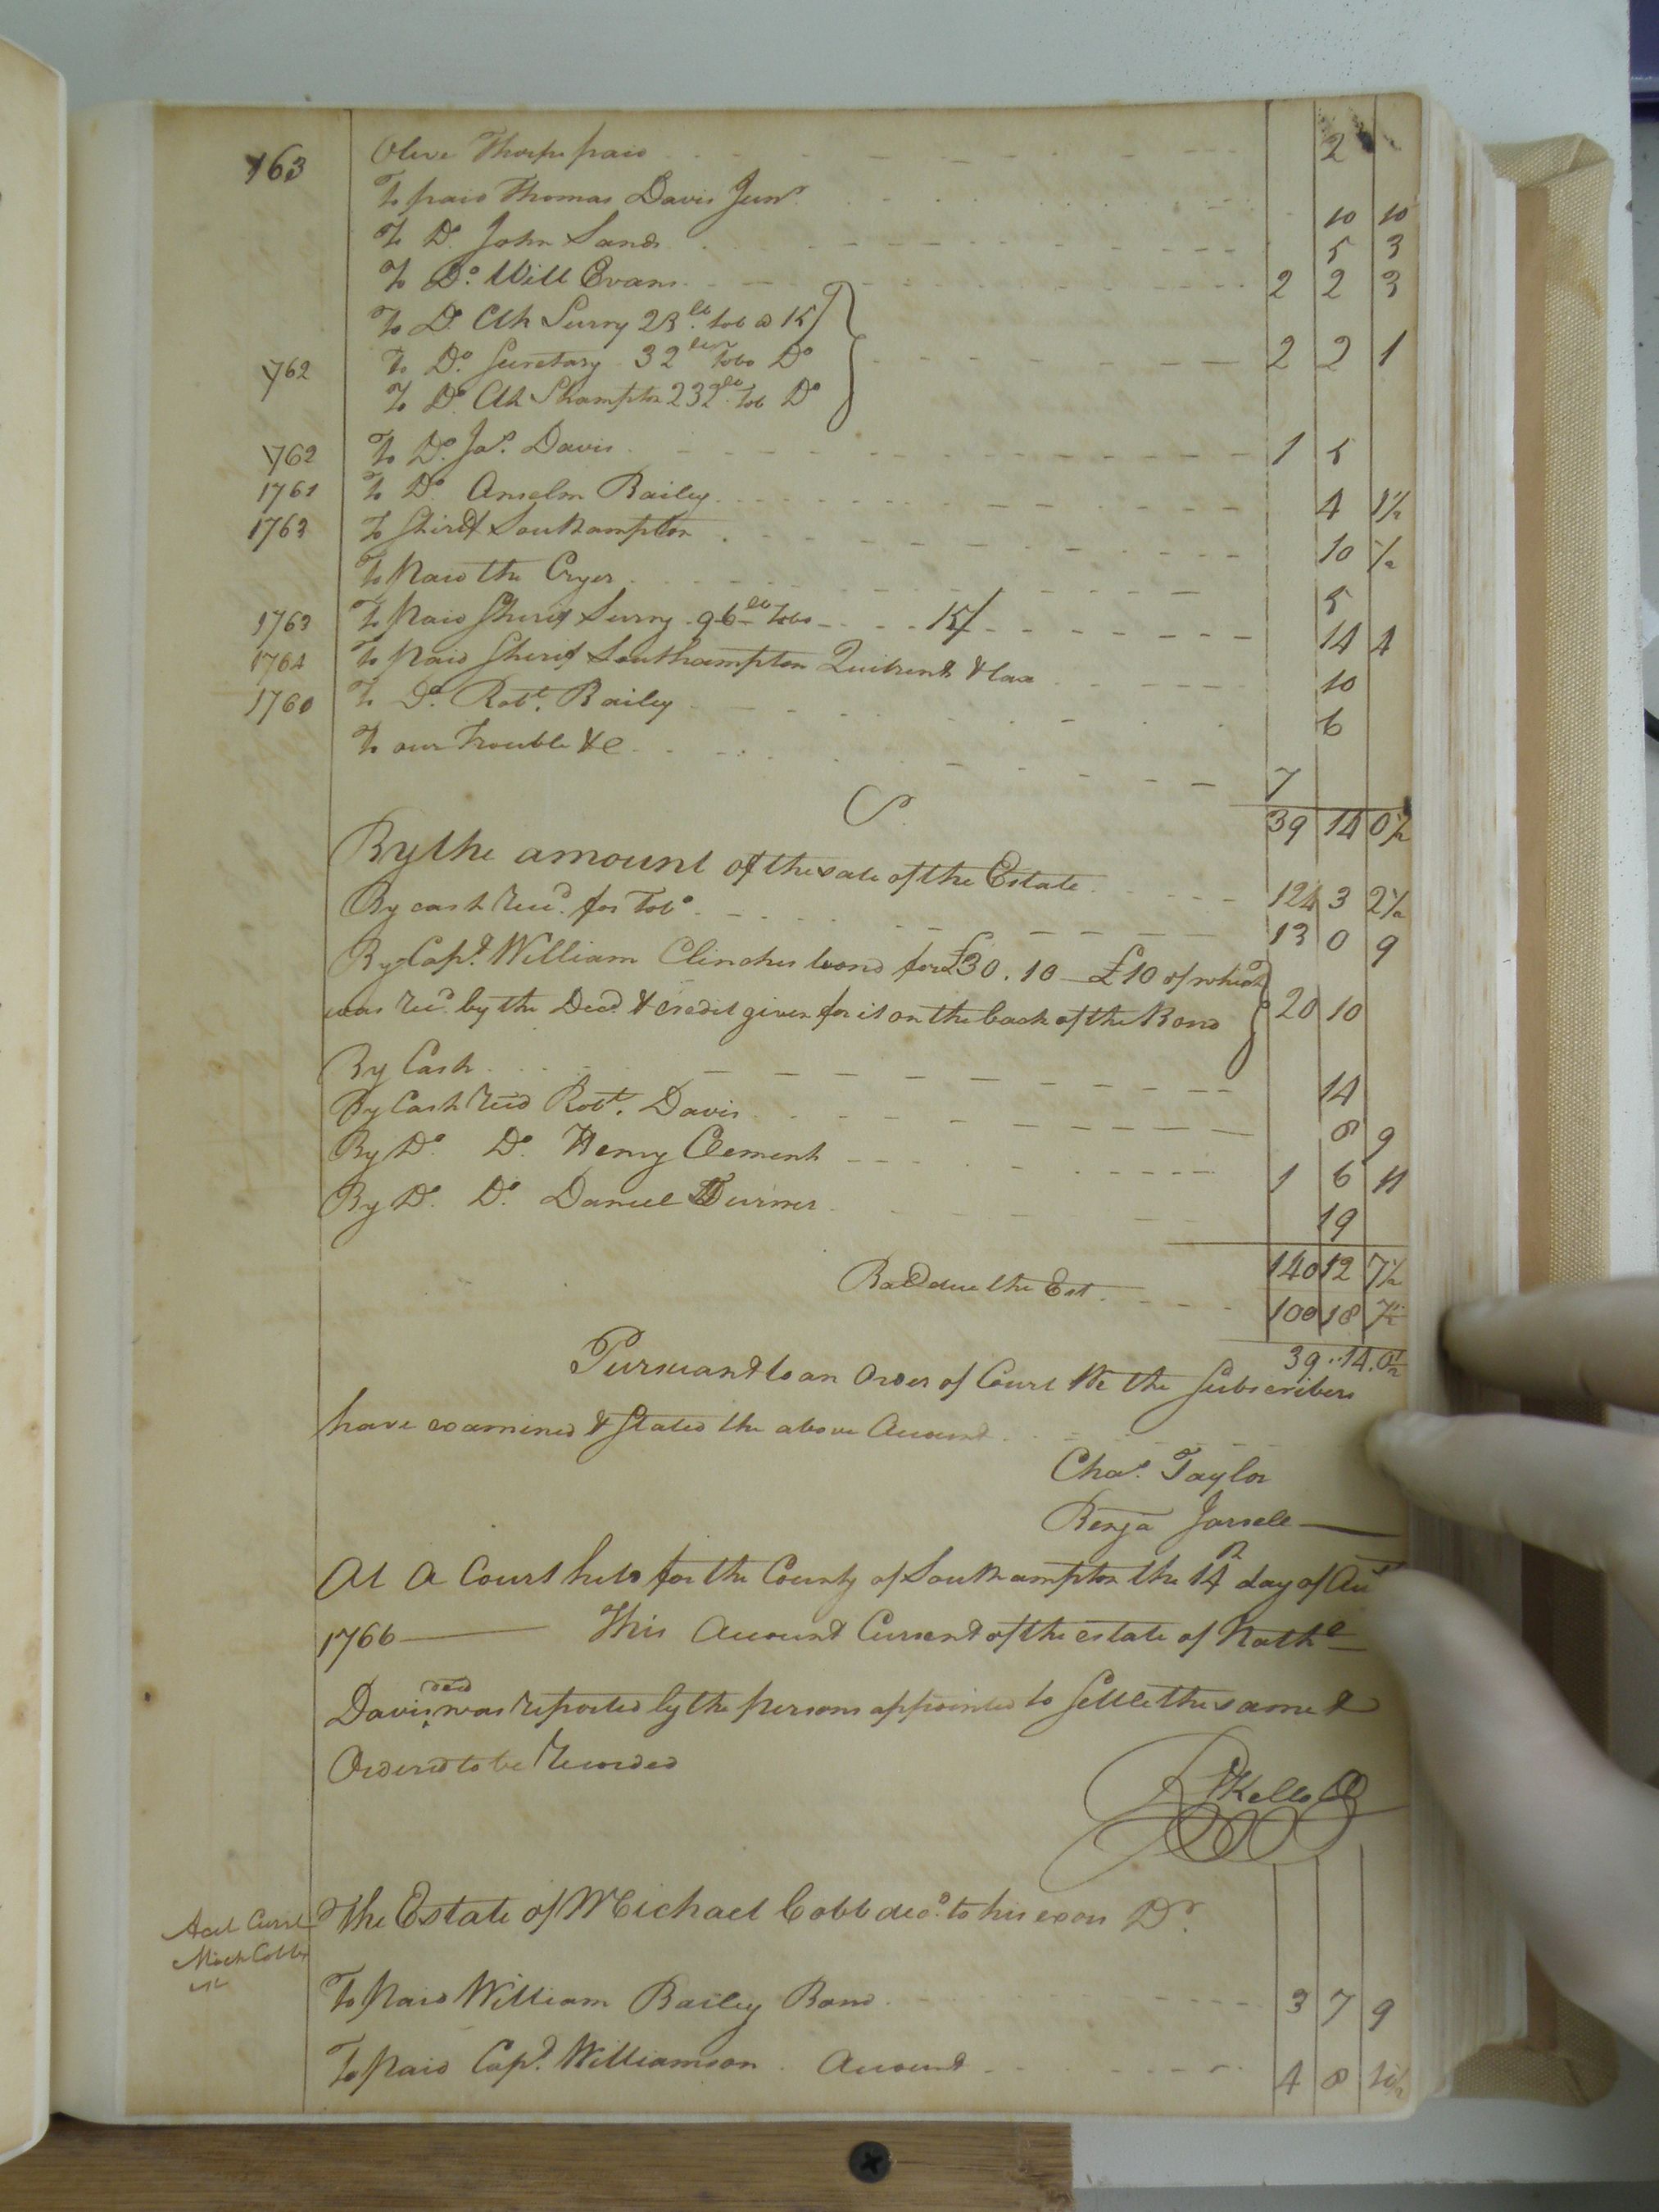 1763 Olive Thorpe paid 2
To paid Thomas Davis Junr. 10 10
To Do. John Sands 5 3
To Do. Will Evans 2 2 3
To Do. Clk Surry 23 lb. tob @ 15/
1762 To Do. Secretary 32 tobo Do 2 2 1
To Do. Clk Shampton 232 lb tob Do
1762 To Do. Jas. Davis 1 5
1761 To Do Anselm Bailey 4 1½
1763 To Shirif Southampton 10 ½
To Paid the Cryer 5
1763 To Paid Sherif Surry 96 lb Tobo 15/ 14 4
1764 To Paid Sherif Southampton Quitrents & tax 10
1760 To Do. Robt. Bailey 6
To our Trouble &c 7
39 14 0½
By the amount of the sale of the Estate 124 3 2½
By cash Recd. for Tobo 13 0 9
By Capt. William Clinches bond for £30.10 £10 of which
was recd by the Decd & credit given for it on the back of the Bond 20 10
By Cash 14
By Cash Recd Robt. Davis 8 9
By Do. Do. Henry Clements 1 6 11
By Do. Do. Daniel Turner 19
140 12 7½
Bal due the Est 100 18 7½
39..14.0½
Pursuant to an Order of Court We the Subscribers
have examined & Stated the above Account
Chas. Taylor
Benja Jarrell
At A Court held for the County of Southampton the 14th day of Aut
1766 This Account Current of the estate of Nathl
Davis decd was reported by the persons appointed to Settle the same &
Ordered to be Recorded
R Kello CC
Acct Curret The Estate of Michael Cobb decd. to his exors Dr.
Mich Cobbs
To Paid William Bailey Bond 3 7 9
To Paid Capt. Williamson Account 4 8 10½